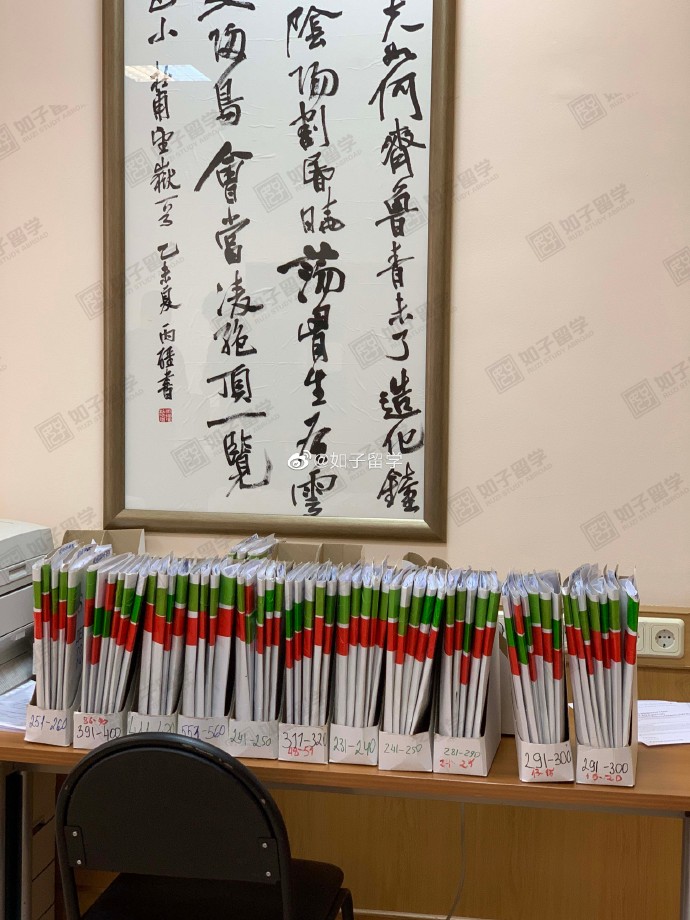 夫如何齊魯青未了造化鍾
陰陽割昏曉蕩胷生層雲
歸鳥會當凌絕頂一覽
山小 杜甫望嶽一首 乙未夏
如子留学
@如子留学
251-260
391-400
551-560
241-250
311-320
231-240
241-250
281-290
291-300
291-300